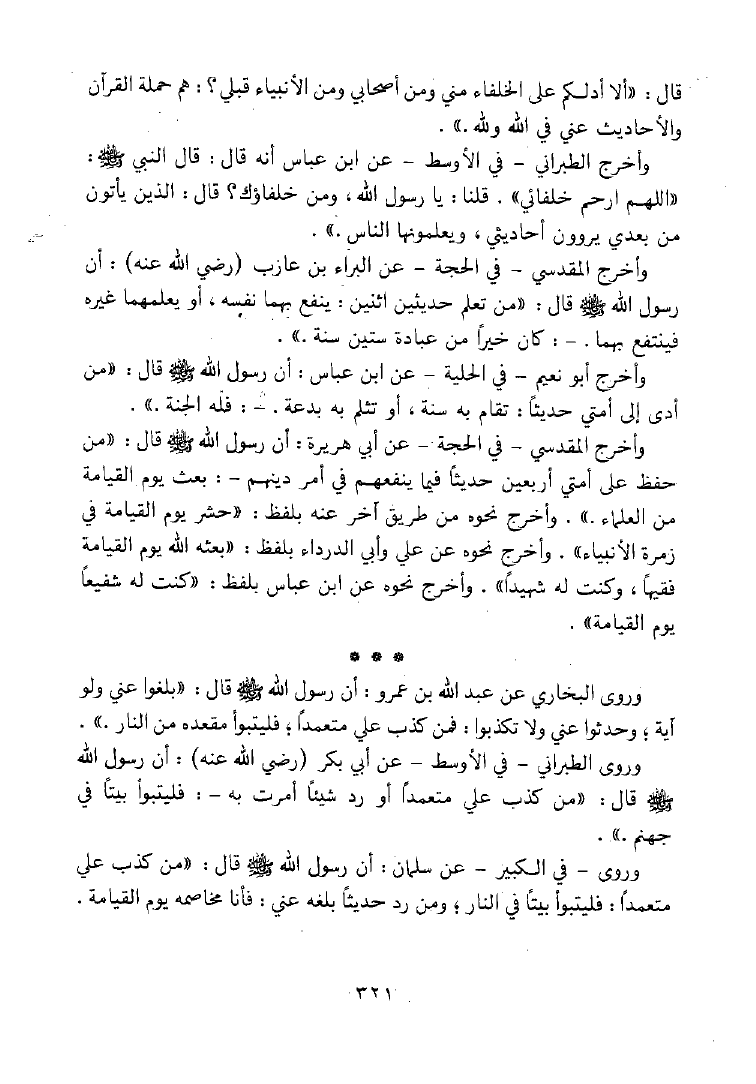 قال : «ألا أدلكم على الخلفاء مني ومن أصحابي ومن الأنبياء قبلي؟ : هم حملة القرآن
والأحاديث عني في الله ولله .» .
وأخرج الطبراني - في الأوسط - عن ابن عباس أنه قال : قال النبي ﷺ :
«اللهم ارحم خلفائي» . قلنا : يا رسول الله ، ومن خلفاؤك؟ قال : الذين يأتون
من بعدي يروون أحاديثي ، ويعلمونها الناس .» .
وأخرج المقدسي - في الحجة - عن البراء بن عازب (رضي الله عنه) : أن
رسول الله ﷺ قال : «من تعلم حديثين اثنين : ينفع بهما نفسه ، أو يعلمهما غيره
فينتفع بهما . - : كان خيراً من عبادة ستين سنة .» .
وأخرج أبو نعيم - في الحلية - عن ابن عباس : أن رسول الله ﷺ قال : «من
أدى إلى أمتي حديثاً : تقام به سنة ، أو تثلم به بدعة . - : فله الجنة .» .
وأخرج المقدسي - في الحجة - عن أبي هريرة : أن رسول الله ﷺ قال : «من
حفظ على أمتي أربعين حديثاً فيما ينفعهم في أمر دينهم - : بعث يوم القيامة
من العلماء .» . وأخرج نحوه من طريق آخر عنه بلفظ : «حشر يوم القيامة في
زمرة الأنبياء» . وأخرج نحوه عن علي وأبي الدرداء بلفظ : «بعثه الله يوم القيامة
فقيهاً ، وكنت له شهيداً» . وأخرج نحوه عن ابن عباس بلفظ : «كنت له شفيعاً
يوم القيامة» .
* * *
وروى البخاري عن عبد الله بن عمرو : أن رسول الله ﷺ قال : «بلغوا عني ولو
آية ؛ وحدثوا عني ولا تكذبوا : فمن كذب علي متعمداً ؛ فليتبوأ مقعده من النار .» .
وروى الطبراني - في الأوسط - عن أبي بكر (رضي الله عنه) : أن رسول الله
ﷺ قال : «من كذب علي متعمداً أو رد شيئاً أمرت به - : فليتبوأ بيتاً في
جهنم .» .
وروى - في الكبير - عن سلمان : أن رسول الله ﷺ قال : «من كذب علي
متعمداً : فليتبوأ بيتاً في النار ؛ ومن رد حديثاً بلغه عني : فأنا مخاصمه يوم القيامة .
٣٢١